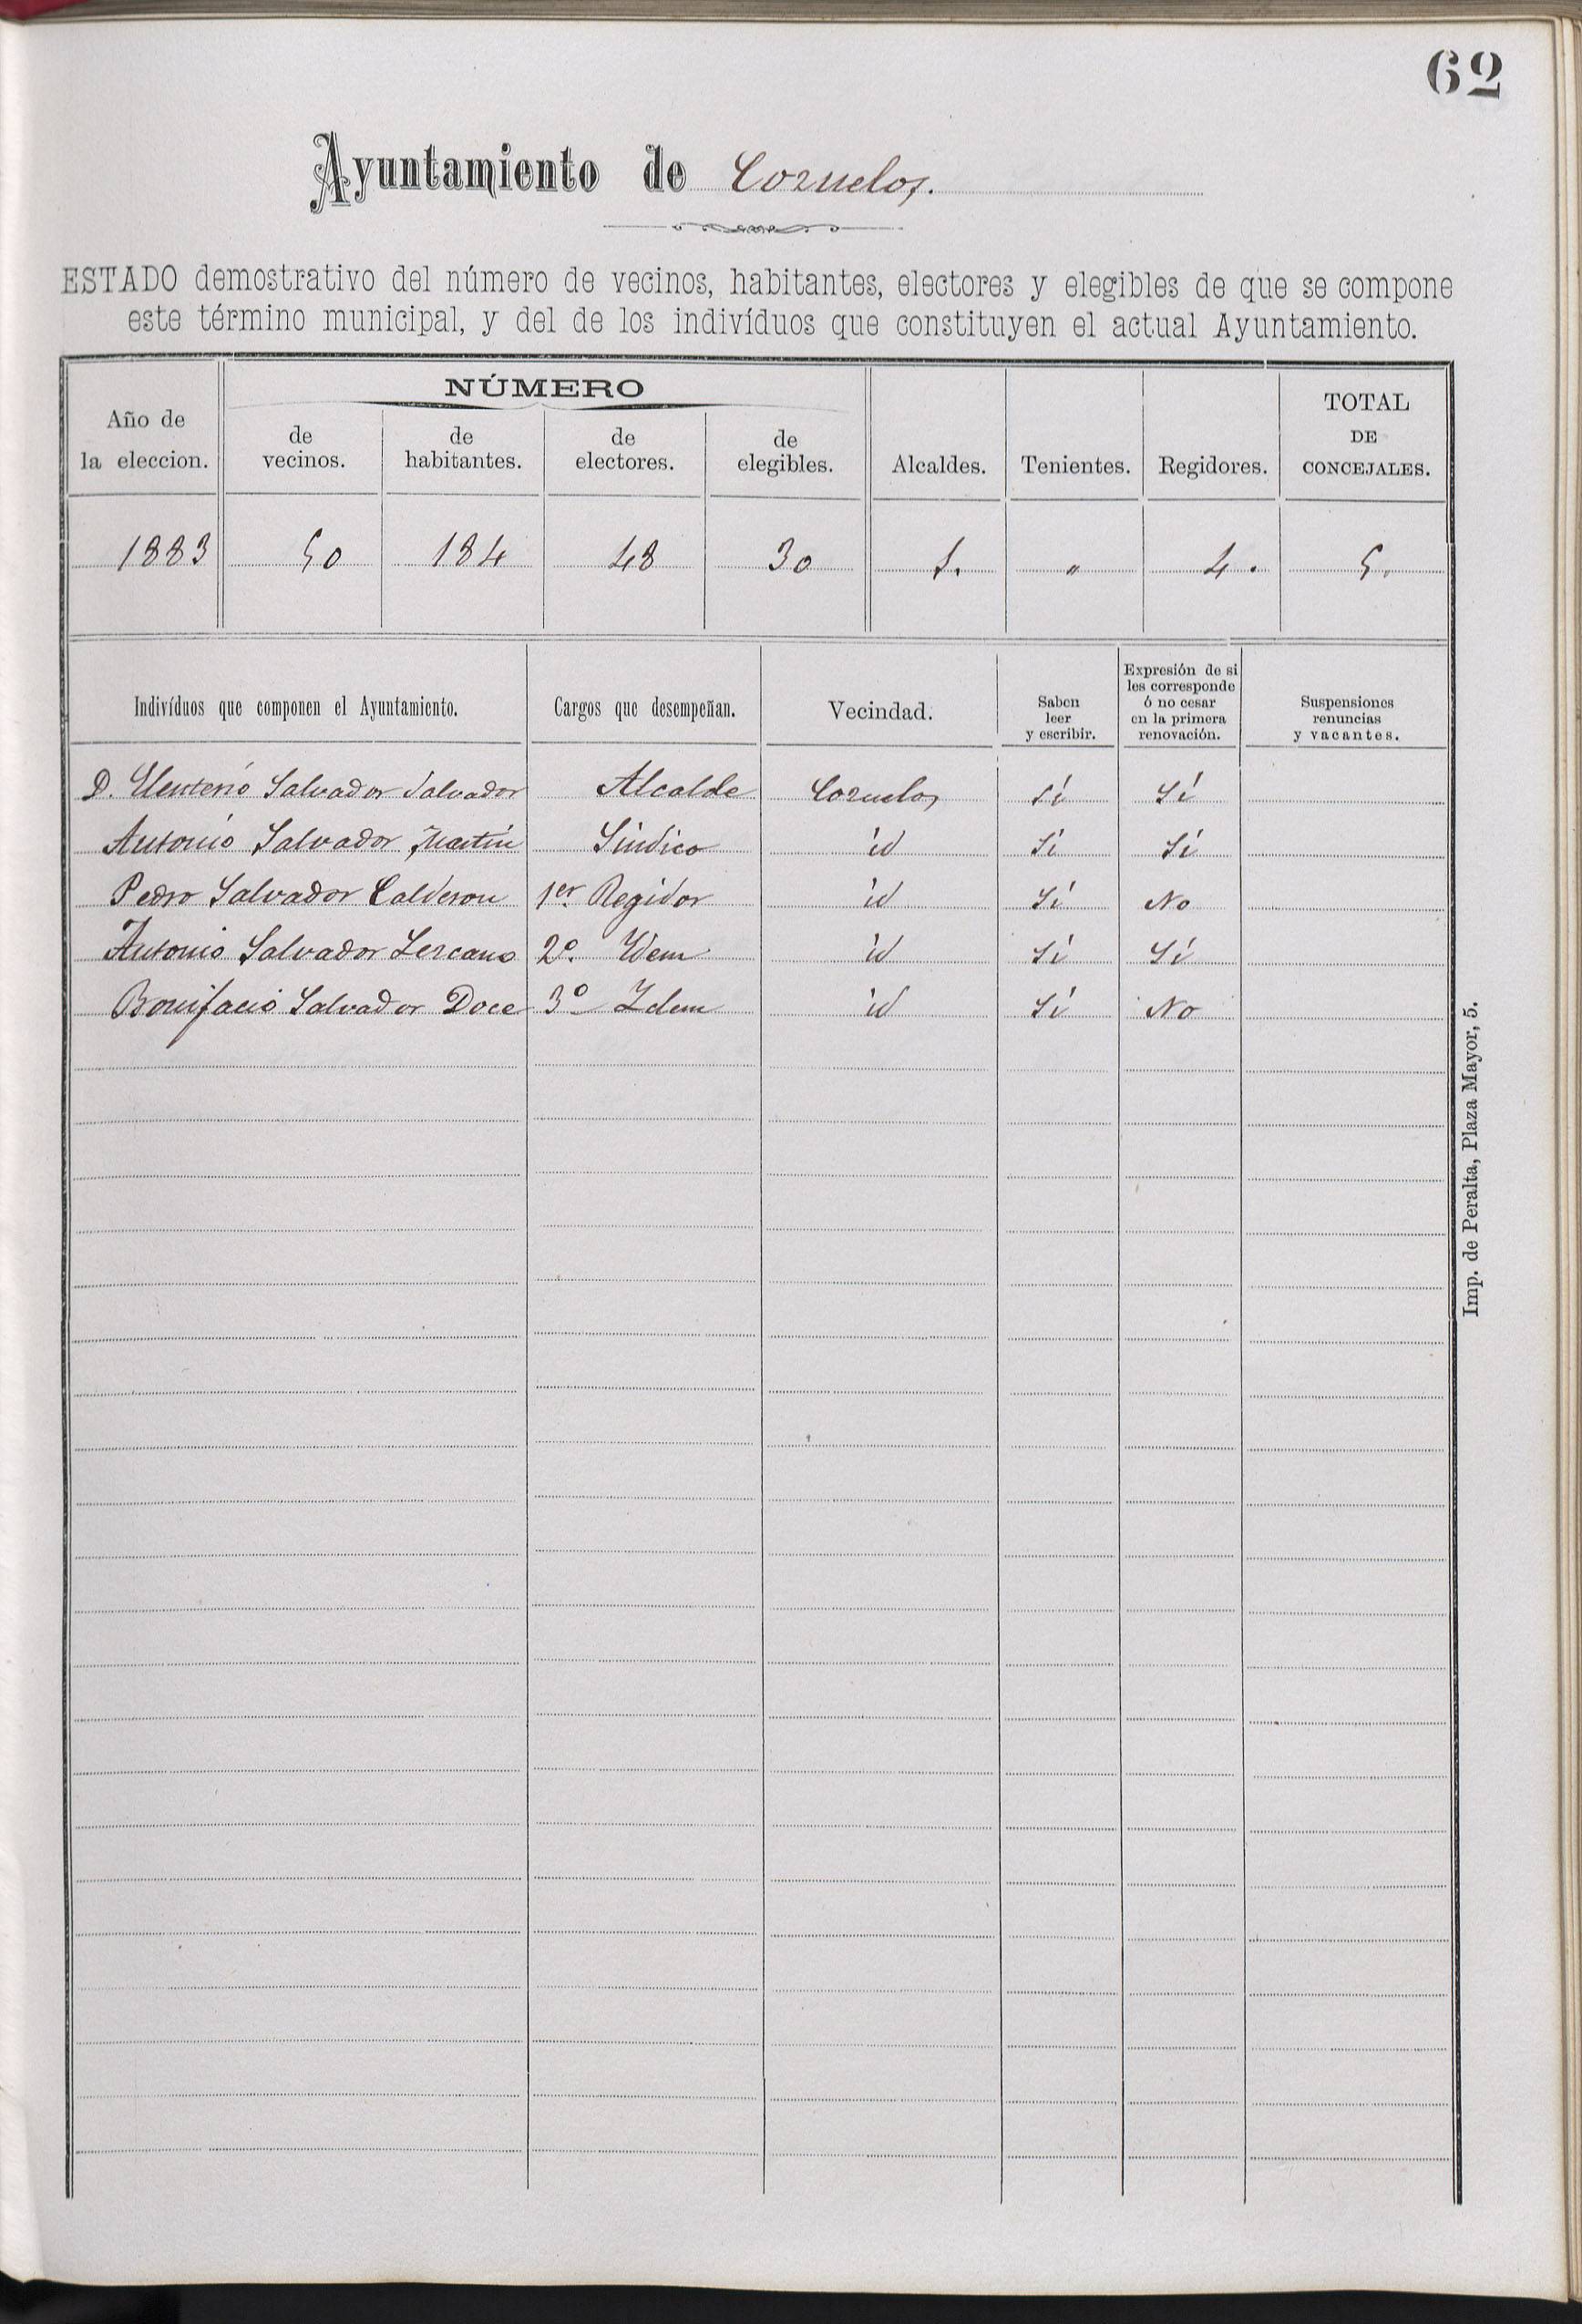 62
Ayuntamiento de Cozuelos.
ESTADO demostrativo del número de vecinos, habitantes, electores y elegibles de que se compone
este término municipal, y del de los indivíduos que constituyen el actual Ayuntamiento.
Año de la eleccion. NÚMERO de vecinos. de habitantes. de electores. de elegibles. Alcaldes. Tenientes. Regidores. TOTAL DE CONCEJALES.
1883 50 184 48 30 1. " 4. 5.
Indivíduos que componen el Ayuntamiento. Cargos que desempeñan. Vecindad. Saben leer y escribir. Expresión de si les corresponde ó no cesar en la primera renovación. Suspensiones renuncias y vacantes.
D. Eleuterio Salvador Salvador Alcalde Cozuelos Sí Sí
Antonio Salvador Martin Sindico id Si Si
Pedro Salvador Calderon 1er. Regidor id Sí No
Antonio Salvador Lezcano 2º. Idem id Sí Sí
Bonifacio Salvador Doce 3º Idem id Sí No
Imp. de Peralta, Plaza Mayor, 5.